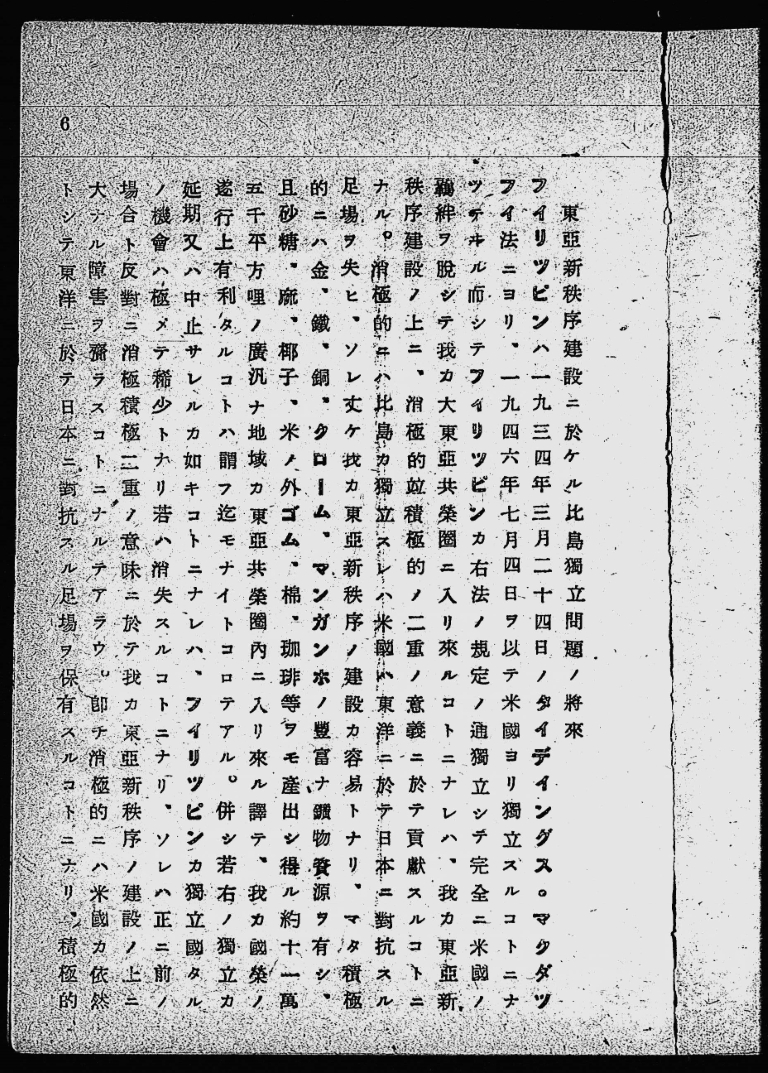 一
東亞新秩序建設ニ於ケル比島獨立問題ノ將來
フイリツピンハ一九三四年三月二十四日ノタイデイングス。マクダツ
フイ法ニヨリ、一九四六年七月四日ヲ以テ米國ヨリ獨立スルコトニナ
ツテヰル而シテフイリツピンカ右法ノ規定ノ通獨立シテ完全ニ米國ノ
羈絆ヲ脫シテ我カ大東亞共榮圈ニ入リ來ルコトニナレハ、我カ東亞新
秩序建設ノ上ニ、消極的竝積極的ノ二重ノ意義ニ於テ貢獻スルコトニ
ナル。消極的ニハ比島カ獨立スレハ米國ハ東洋ニ於テ日本ニ對抗スル
足場ヲ失ヒ、ソレ丈ケ我カ東亞新秩序ノ建設カ容易トナリ、マタ積極
的ニハ金、鐵、銅、クローム、マンガンホノ豐富ナ鑛物資源ヲ有シ、
且砂糖、麻、椰子、米ノ外ゴム、棉、珈琲等ヲモ產出シ得ル約十一萬
五千平方哩ノ廣汎ナ地域カ東亞共榮圈內ニ入リ來ル譯テ、我カ國榮ノ
遂行上有利タルコトハ謂フ迄モナイトコロテアル。併シ若右ノ獨立カ
延期又ハ中止サレルカ如キコトニナレハ、フイリツピンカ獨立國タル
ノ機會ハ極メテ稀少トナリ若ハ消失スルコトニナリ、ソレハ正ニ前ノ
場合ト反對ニ消極積極二重ノ意味ニ於テ我カ東亞新秩序ノ建設ノ上ニ
大ナル障害ヲ齎ラスコトニナルテアラウ。卽チ消極的ニハ米國カ依然
トシテ東洋ニ於テ日本ニ對抗スル足場ヲ保有スルコトニナリ、積極的
6